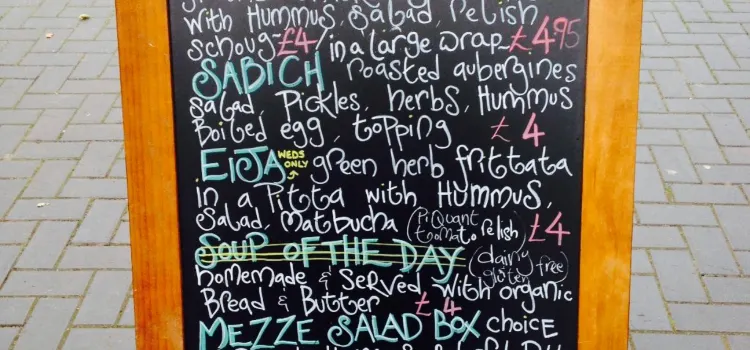 with Hummus, Salad, relish
schoug ~ £4 / in a large wrap ~ £4.95
SABICH roasted aubergines
salad Pickles, herbs, Hummus
Boiled egg, topping £4
EIJA WEDS ONLY green herb frittata
in a Pitta with Hummus,
Salad, Matbucha (Piquant tomato relish) £4
SOUP OF THE DAY (dairy gluten free)
homemade & Served with organic
Bread & Butter £4
MEZZE SALAD BOX choice